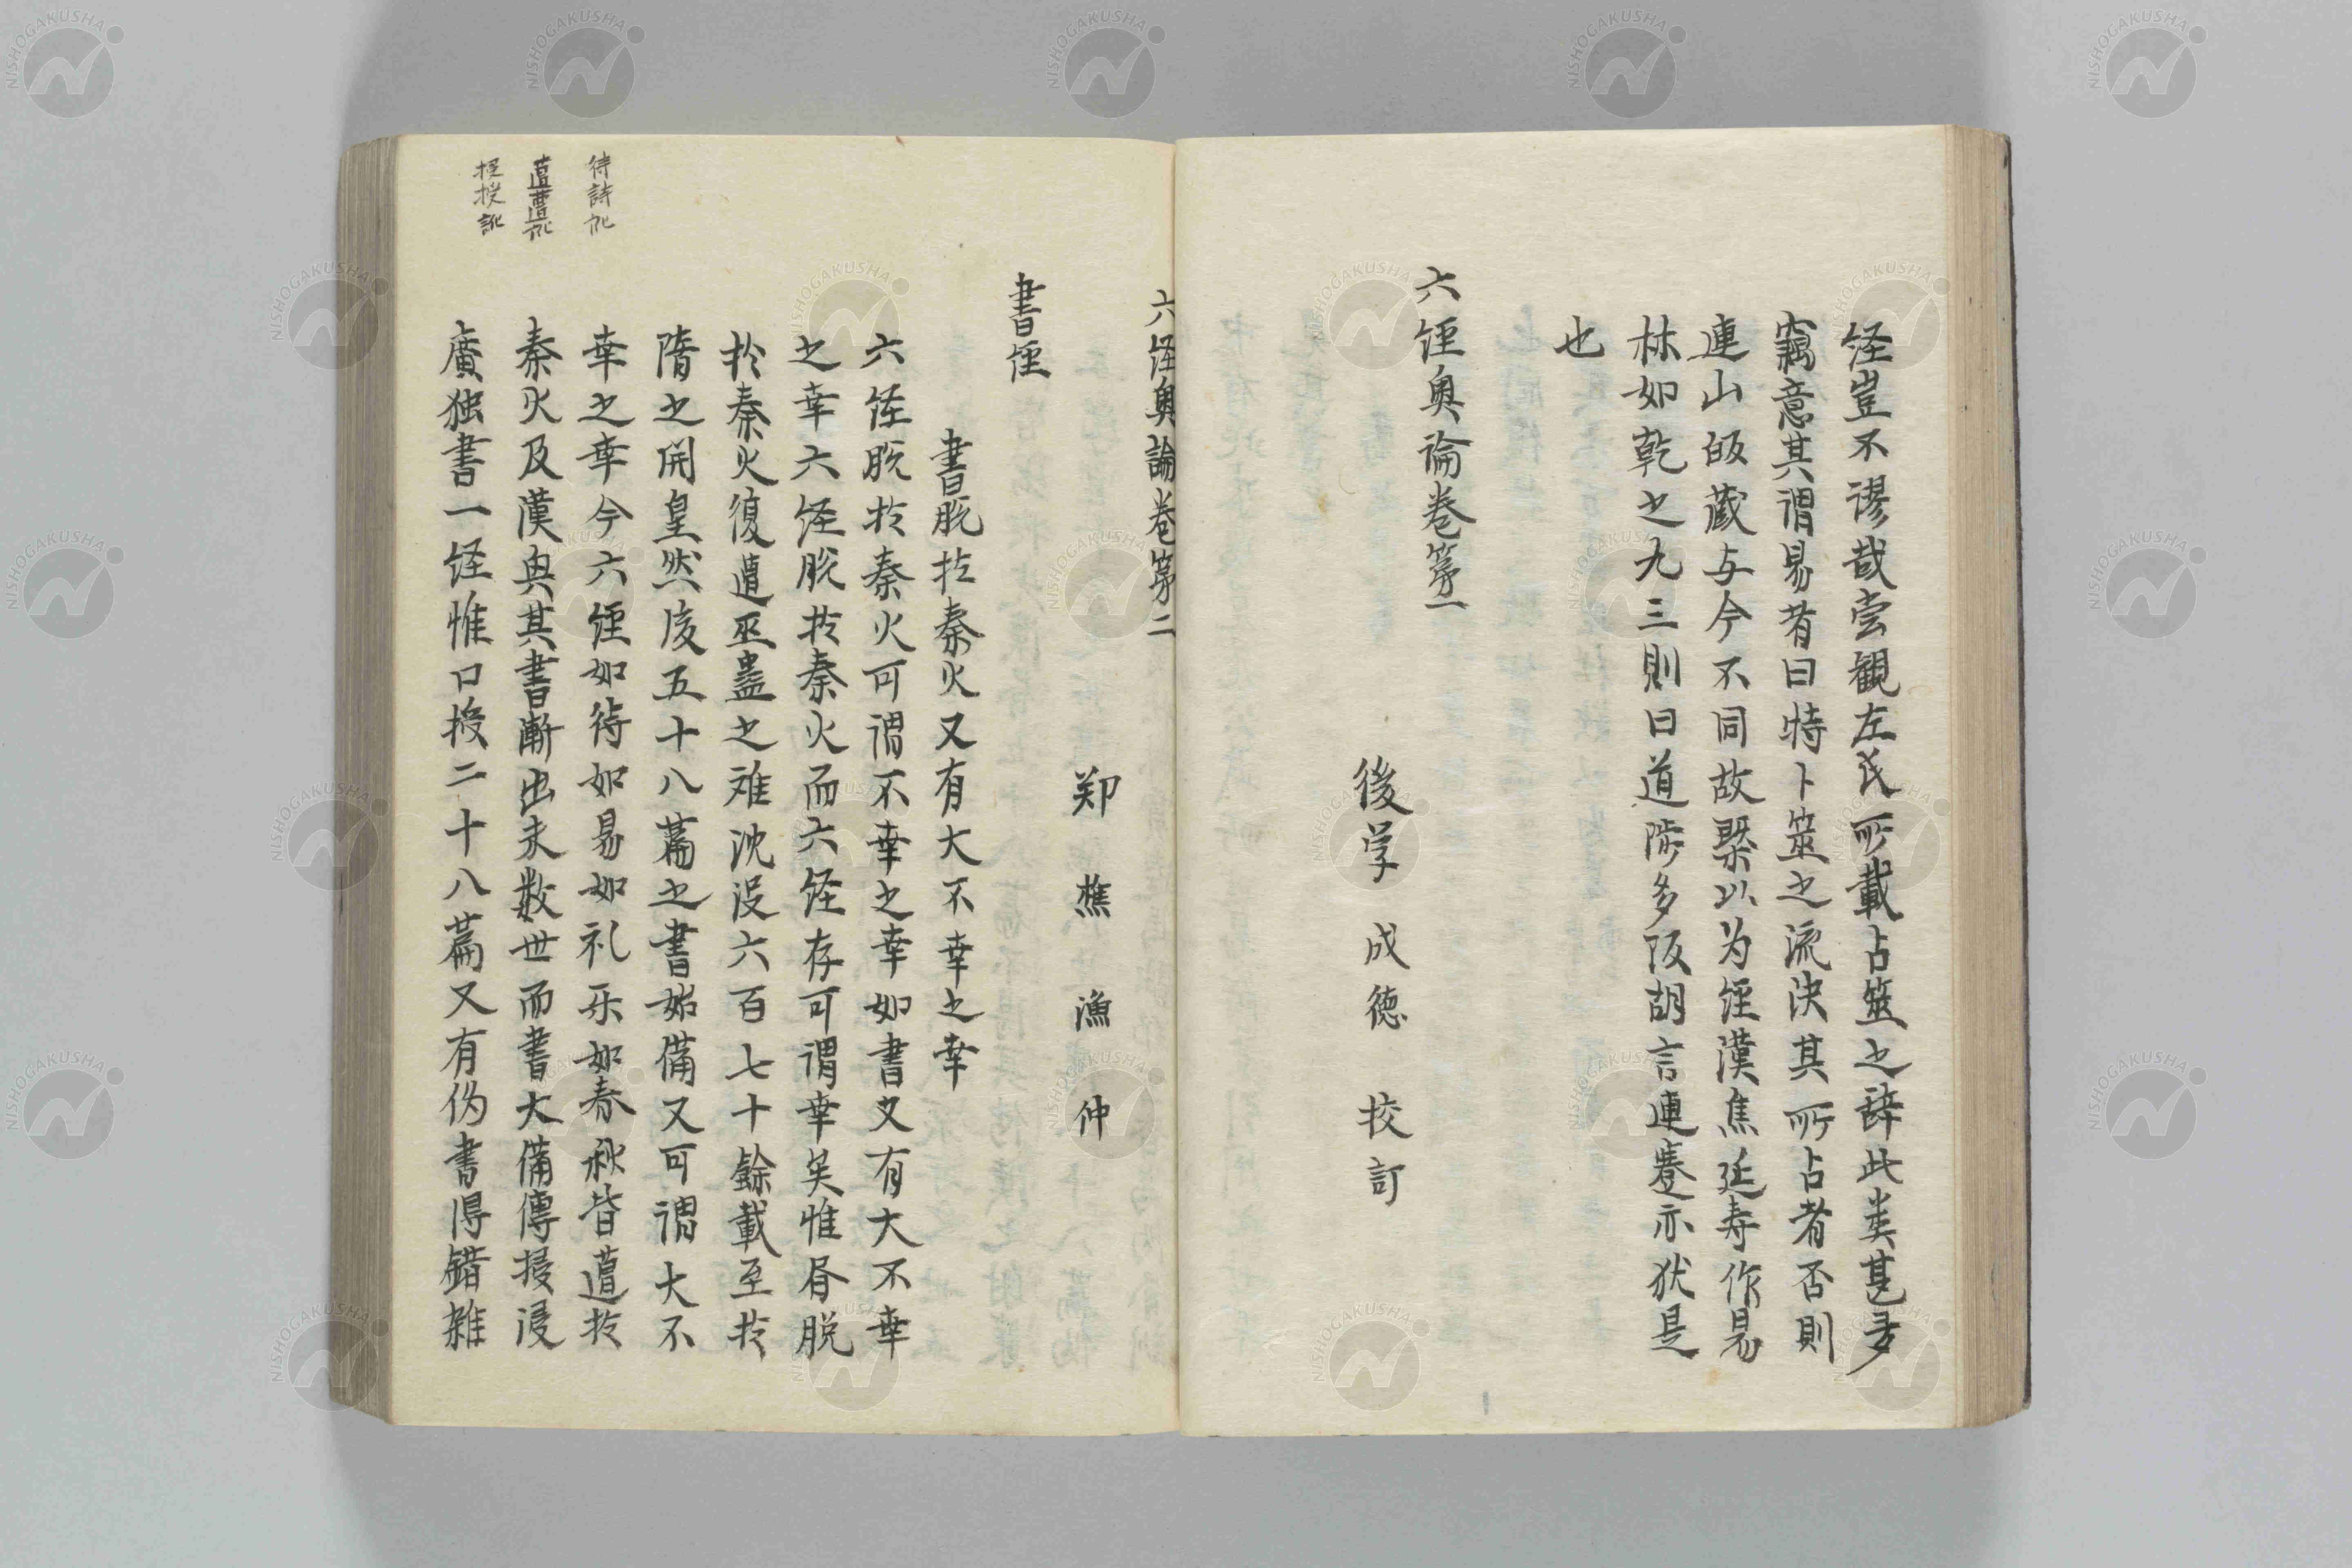 经豈不謬哉尝観左氏所載占筮之辞此类甚多
竊意其謂易者曰特卜筮之流决其所占者否則
連山皈蔵与今不同故槩以为经漢焦延寿作易
林如乾之九三則曰道陟多阪胡言連蹇亦狀是
也
六经奥論卷第一
後学 成德 校訂
六经奥論卷第二
郑樵漁仲
書经
書脱於秦火又有大不幸之幸
六经脱於秦火可謂不幸之幸如書又有大不幸
之幸六经脱於秦火而六经存可謂幸矣惟昏脱
於秦火復遭巫蠱之难沈没六百七十餘載至於
隋之開皇然後五十八篇之書始備又可謂大不
幸之幸今六经如待如易如礼乐如春秋皆遭於
秦火及漢興其書漸出未数世而書大備傳授浸
廣独書一经惟口授二十八篇又有伪書得錯雑
待詩訛
遭遭訛
授授訛
NISHOGAKUSHA